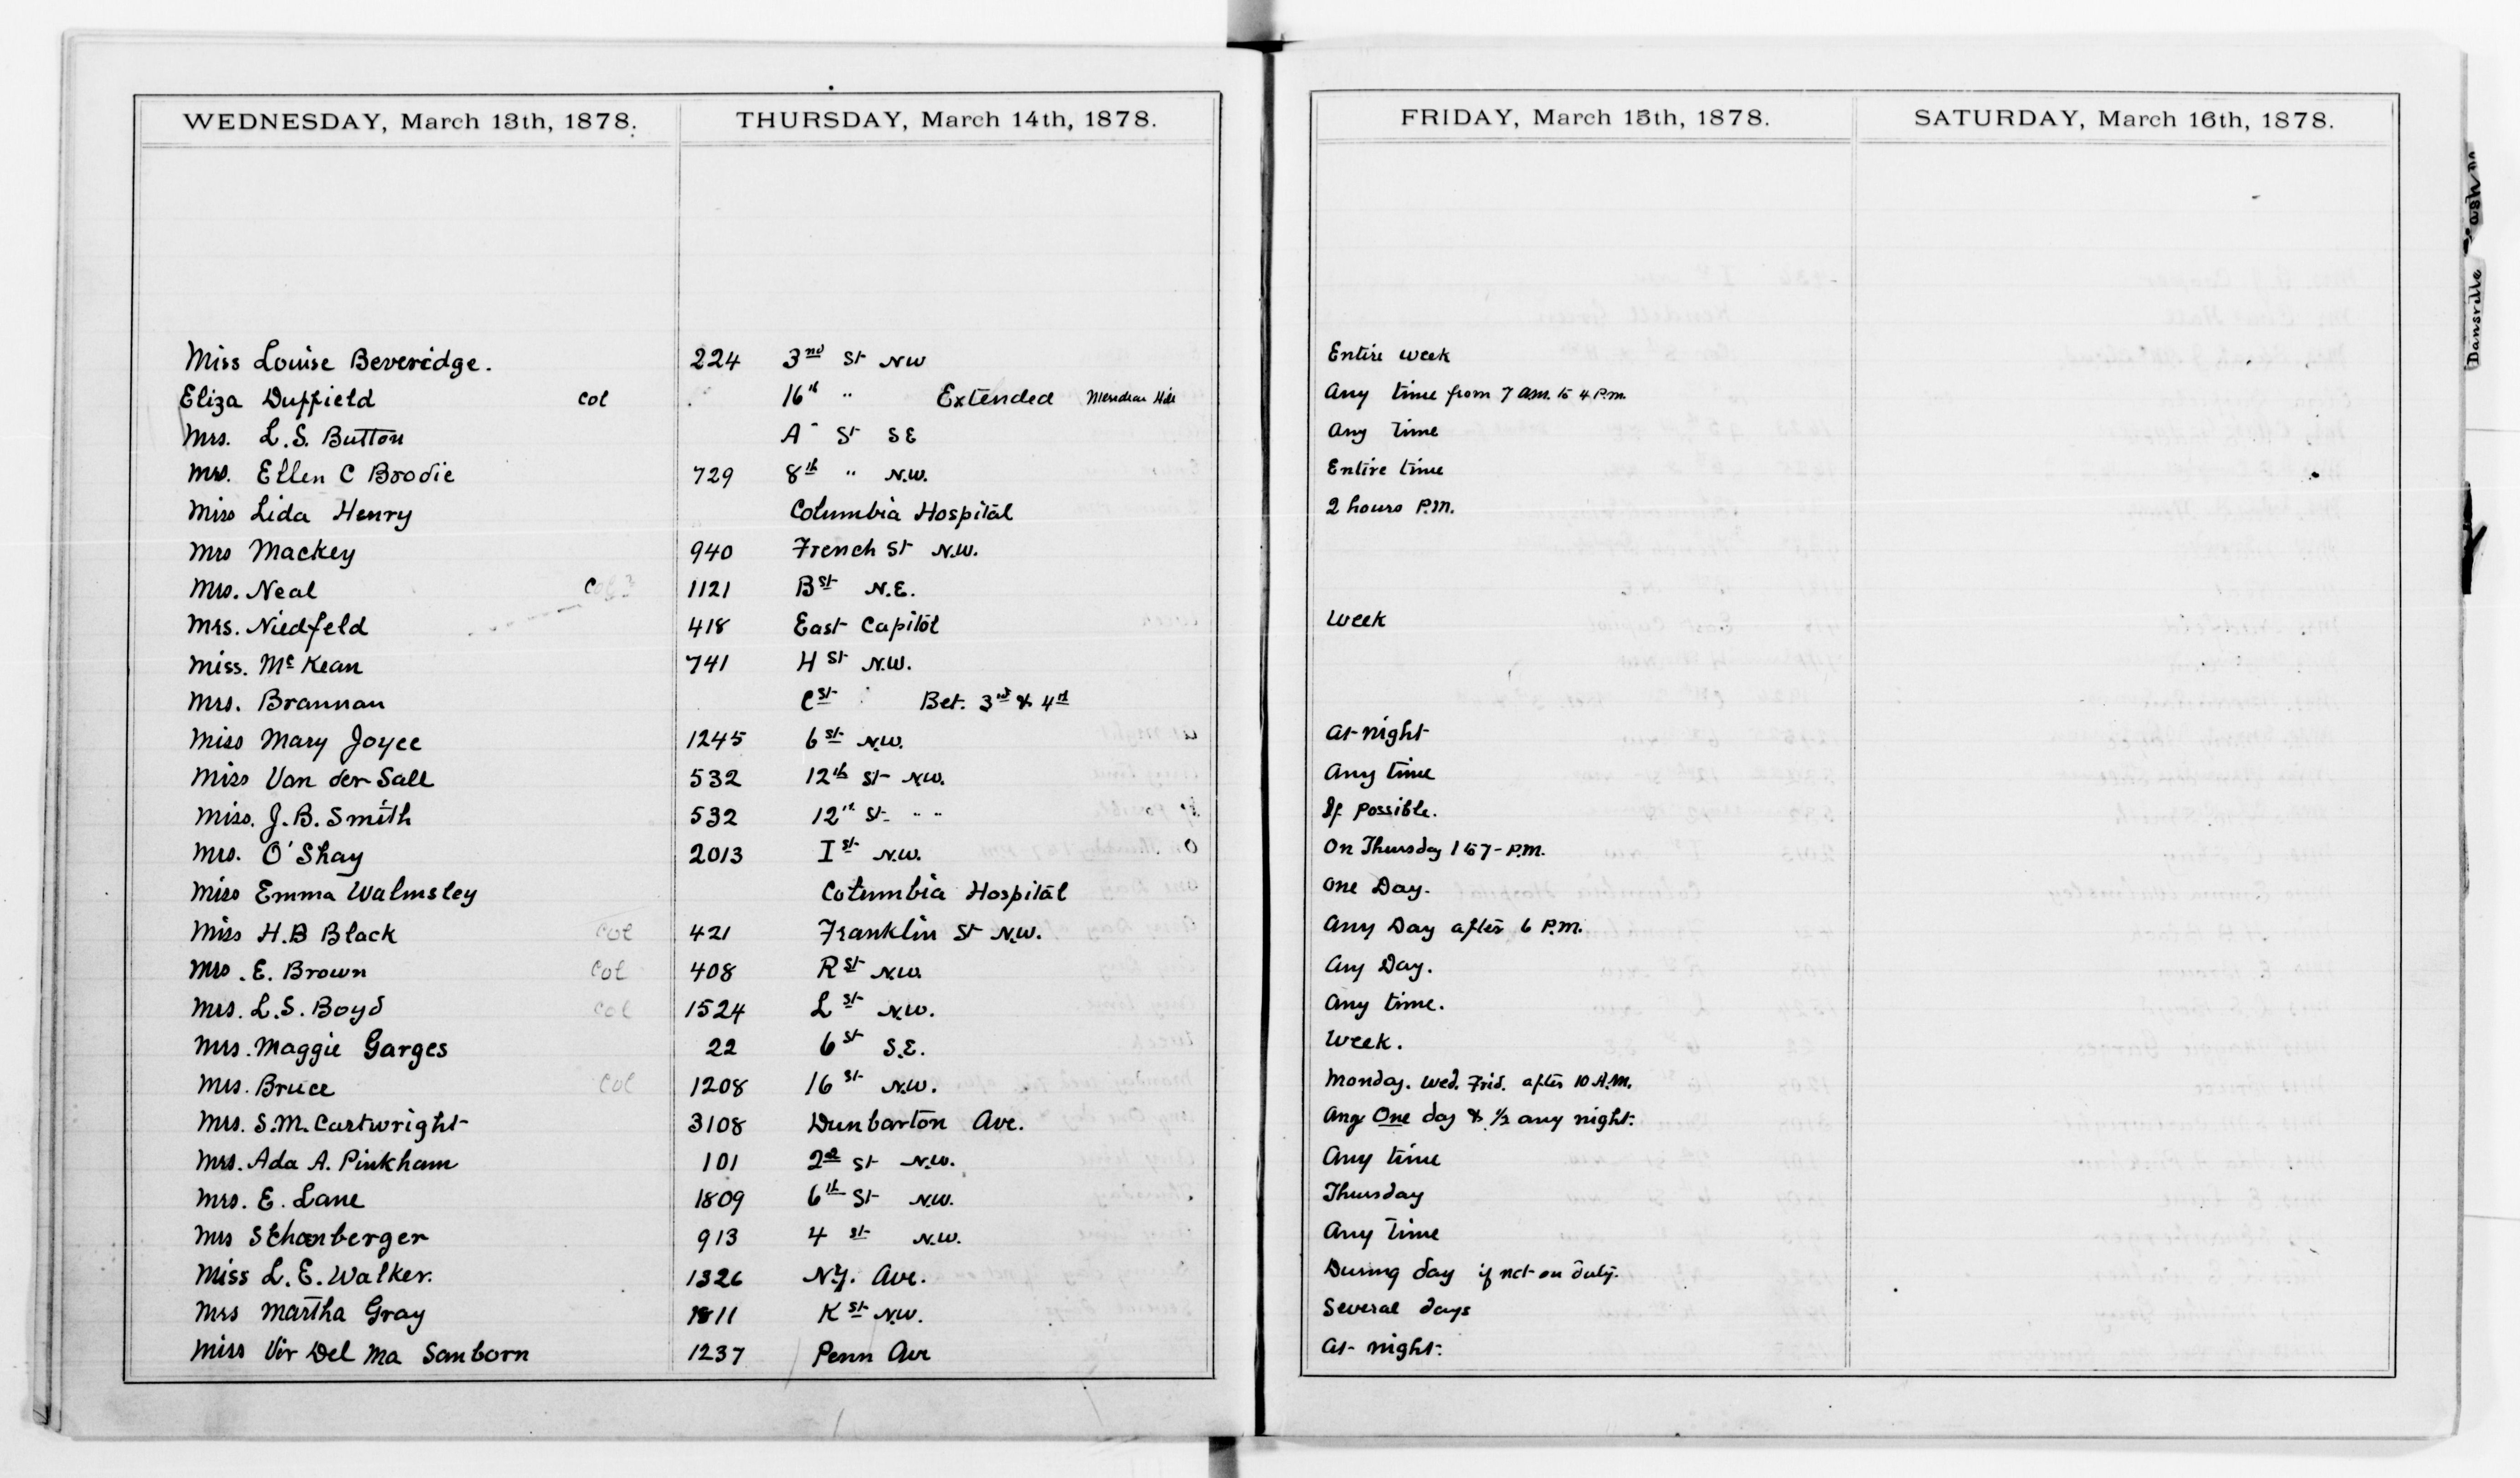 WEDNESDAY, March 13th, 1878. THURSDAY, March 14th, 1878. FRIDAY, March 15th, 1878. SATURDAY, March 16th, 1878.
Miss Louise Beveridge. 224 3nd St NW Entire week
Eliza Duffield Col 16th " Extended Meridian Hill Any time from 7 am. to 4 P.m.
Mrs. L.S. Button A St SE Any time
Mrs. Ellen C Brodie 729 8th " N.W. Entire time
Miss Lida Henry Columbia Hospital 2 hours P.M.
Mrs Mackey 940 French St N.W.
Mrs. Neal Col? 1121 B St N.E.
Mrs. Niedfeld 418 East Capitol Week
Miss. McKean 741 H St N.W.
Mrs. Brannan C St Bet. 3rd & 4th
Miss Mary Joyce 1245 6 St N.W. At night
Miss Van der Sall 532 12th St N.W. Any time
Miss. J.B. Smith 532 12th St " " If possible.
Mrs. O'Shay 2013 I St N.W. On Thursday 1 to 7 - P.M.
Miss Emma Walmsley Columbia Hospital One Day.
Miss H.B Black Col 421 Franklin St N.W. Any Day after 6 P.M.
Mrs. E. Brown Col 408 R St N.W. Any Day.
Mrs. L.S. Boyd Col 1524 L St N.W. Any time.
Mrs. Maggie Garges 22 6 St S.E. Week.
Mrs. Bruce Col 1208 16 St N.W. Monday. Wed. Frid. after 10 A.M.
Mrs. S.M. Cartwright 3108 Dunbarton Ave. Any One day & 1/2 any night.
Mrs. Ada A. Pinkham 101 2nd St N.W. Any time
Mrs. E. Lane 1809 6th St N.W. Thursday
Mrs Schonberger 913 4 St N.W. Any Time
Miss L.E. Walker. 1326 N.Y. Ave. During day if not on duty.
Mrs Martha Gray 1811 K St N.W. Several days
Miss Vir Del Ma Sanborn 1237 Penn Ave At night.
Dansville